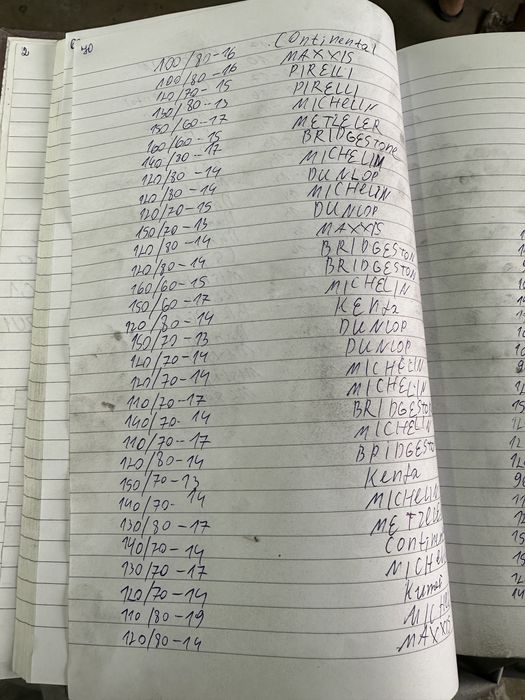 2 70
100/80-16 Continental
100/80-16 MAXXIS
120/70-15 PIRELLI
130/80-13 PIRELLI
150/60-17 MICHELIN
160/60-15 METZELER
140/80-17 BRIDGESTONE
120/80-14 MICHELIN
120/80-14 DUNLOP
120/70-15 MICHELIN
150/70-13 DUNLOP
120/80-14 MAXXIS
120/80-14 BRIDGESTON
160/60-15 BRIDGESTON
150/60-17 MICHELIN
120/80-14 Kenta
150/70-13 DUNLOP
140/70-14 DUNLOP
140/70-14 MICHELIN
110/70-17 MICHELIN
140/70-14 BRIDGESTON
110/70-17 MICHELIN
120/80-14 BRIDGEST
150/70-13 Kenta
140/70-14 MICHELIN
130/80-17 METZELE
140/70-14 Contin
130/70-17 MICHE
120/70-14
110/80-19 MICH
120/80-14 MAXXIS